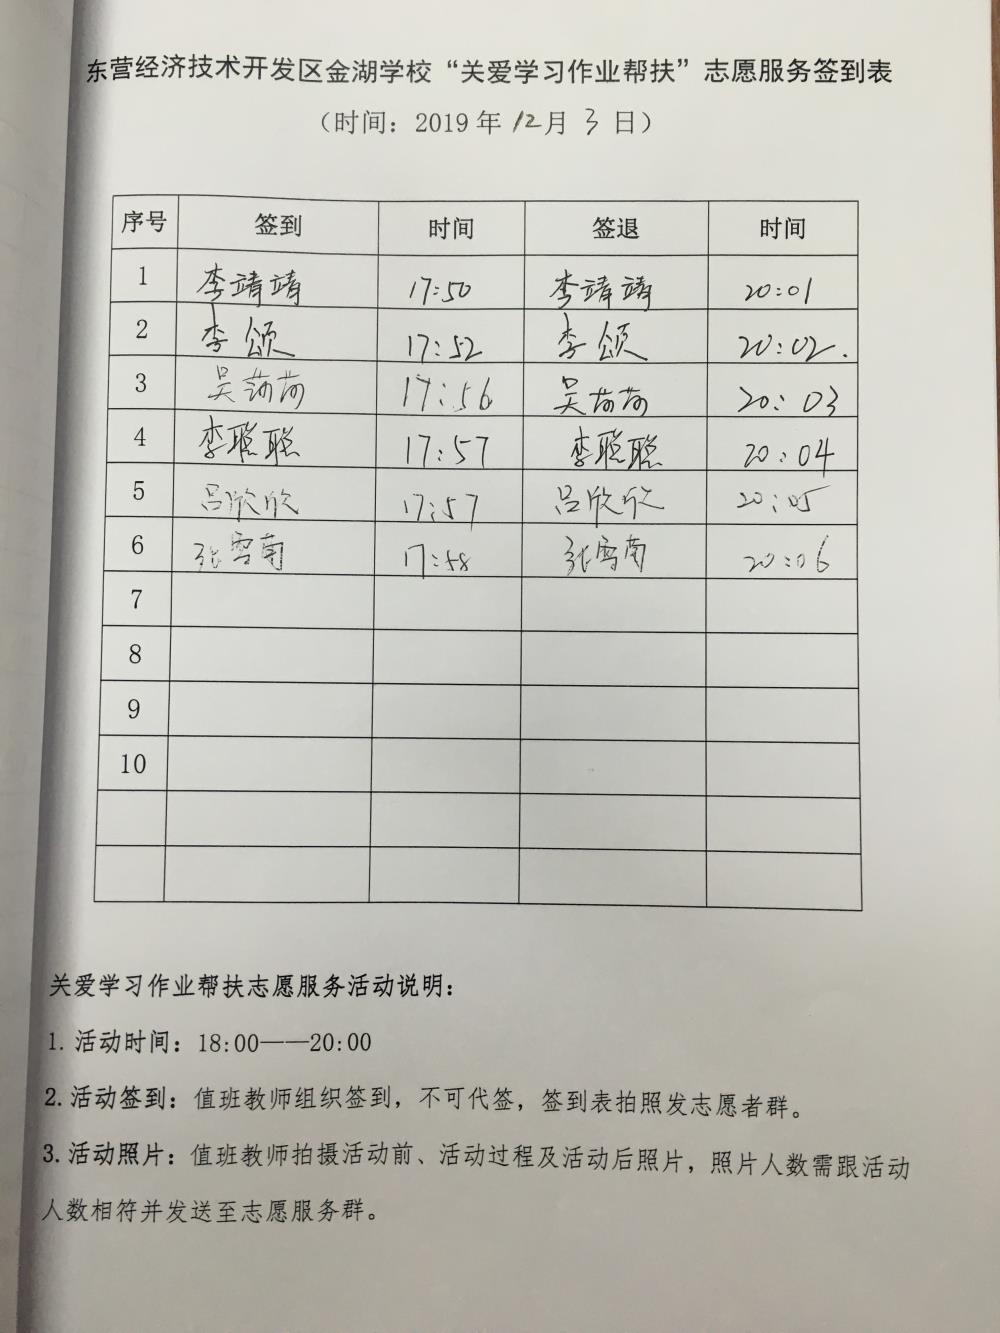 东营经济技术开发区金湖学校“关爱学习作业帮扶”志愿服务签到表
（时间：2019年12月3日）
序号 签到 时间 签退 时间
1 李靖靖 17:50 李靖靖 20:01
2 李颂 17:52 李颂 20:02.
3 吴荷荷 17:56 吴荷荷 20:03
4 李聪聪 17:57 李聪聪 20:04
5 吕欣欣 17:57 吕欣欣 20:05
6 张雪菊 17:58 张雪菊 20:06
7
8
9
10
关爱学习作业帮扶志愿服务活动说明：
1. 活动时间：18:00——20:00
2. 活动签到：值班教师组织签到，不可代签，签到表拍照发志愿者群。
3. 活动照片：值班教师拍摄活动前、活动过程及活动后照片，照片人数需跟活动
人数相符并发送至志愿服务群。